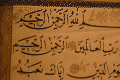 بسم الله الرحمن الرحيم
رب العالمين الرحمن الرحيم
يوم الدين إياك نعبد